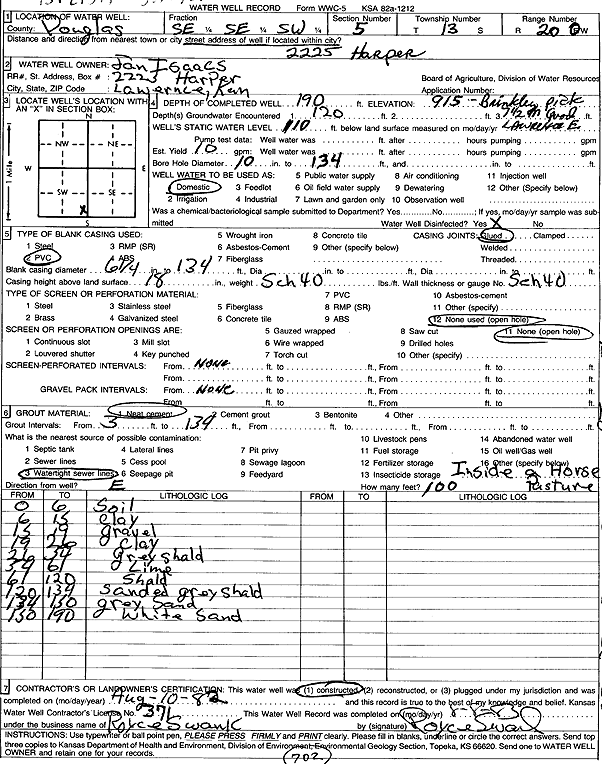 WATER WELL RECORD Form WWC-5 KSA 82a-1212
1 LOCATION OF WATER WELL: Fraction Section Number Township Number Range Number
County: Douglas SE ¼ SE ¼ SW ¼ 5 T 13 S R 20 E/W
Distance and direction from nearest town or city street address of well if located within city?
2225 Harper
2 WATER WELL OWNER: Jan Isaacs
RR#, St. Address, Box # : 2225 Harper Board of Agriculture, Division of Water Resources
City, State, ZIP Code : Lawrence, Kan Application Number:
3 LOCATE WELL'S LOCATION WITH AN "X" IN SECTION BOX:
N
NW NE
W E
SW SE
X
S
1 Mile
4 DEPTH OF COMPLETED WELL 190 ft. ELEVATION: 915
Depth(s) Groundwater Encountered 1 120 ft. 2 ft. 3 ft.
WELL'S STATIC WATER LEVEL 110 ft. below land surface measured on mo/day/yr Lawrence E.
Pump test data: Well water was ft. after hours pumping gpm
Est. Yield 10 gpm: Well water was ft. after hours pumping gpm
Bore Hole Diameter 10 in. to 134 ft., and in. to ft.
WELL WATER TO BE USED AS: 5 Public water supply 8 Air conditioning 11 Injection well
1 Domestic 3 Feedlot 6 Oil field water supply 9 Dewatering 12 Other (Specify below)
2 Irrigation 4 Industrial 7 Lawn and garden only 10 Observation well
Was a chemical/bacteriological sample submitted to Department? Yes No ; If yes, mo/day/yr sample was sub-
mitted Water Well Disinfected? Yes X No
5 TYPE OF BLANK CASING USED: 5 Wrought iron 8 Concrete tile CASING JOINTS: Glued Clamped
1 Steel 3 RMP (SR) 6 Asbestos-Cement 9 Other (specify below) Welded
2 PVC 4 ABS 7 Fiberglass Threaded
Blank casing diameter 6 1/4 in. to 134 ft., Dia in. to ft., Dia in. to ft.
Casing height above land surface 18 in., weight Sch 40 lbs./ft. Wall thickness or gauge No. Sch 40
TYPE OF SCREEN OR PERFORATION MATERIAL: 7 PVC 10 Asbestos-cement
1 Steel 3 Stainless steel 5 Fiberglass 8 RMP (SR) 11 Other (specify)
2 Brass 4 Galvanized steel 6 Concrete tile 9 ABS 12 None used (open hole)
SCREEN OR PERFORATION OPENINGS ARE: 5 Gauzed wrapped 8 Saw cut 11 None (open hole)
1 Continuous slot 3 Mill slot 6 Wire wrapped 9 Drilled holes
2 Louvered shutter 4 Key punched 7 Torch cut 10 Other (specify)
SCREEN-PERFORATED INTERVALS: From NONE ft. to ft., From ft. to ft.
From ft. to ft., From ft. to ft.
GRAVEL PACK INTERVALS: From NONE ft. to ft., From ft. to ft.
From ft. to ft., From ft. to ft.
6 GROUT MATERIAL: 1 Neat cement 2 Cement grout 3 Bentonite 4 Other
Grout Intervals: From 3 ft. to 134 ft., From ft. to ft., From ft. to ft.
What is the nearest source of possible contamination: 10 Livestock pens 14 Abandoned water well
1 Septic tank 4 Lateral lines 7 Pit privy 11 Fuel storage 15 Oil well/Gas well
2 Sewer lines 5 Cess pool 8 Sewage lagoon 12 Fertilizer storage 16 Other (specify below)
3 Watertight sewer lines 6 Seepage pit 9 Feedyard 13 Insecticide storage Inside a Horse
Direction from well? E How many feet? 100 Pasture
FROM TO LITHOLOGIC LOG FROM TO LITHOLOGIC LOG
0 6 Soil
6 15 Clay
15 19 gravel
19 26 Clay
26 39 Grey shald
39 61 Lime
61 120 Shald
120 134 Sanded grey shald
134 150 grey Sand
150 190 White Sand
7 CONTRACTOR'S OR LANDOWNER'S CERTIFICATION: This water well was (1) constructed, (2) reconstructed, or (3) plugged under my jurisdiction and was
completed on (mo/day/year) Aug-10-82 and this record is true to the best of my knowledge and belief. Kansas
Water Well Contractor's License No. This Water Well Record was completed on (mo/day/yr)
under the business name of by (signature)
INSTRUCTIONS: Use typewriter or ball point pen, PLEASE PRESS FIRMLY and PRINT clearly. Please fill in blanks, underline or circle the correct answers. Send top
three copies to Kansas Department of Health and Environment, Division of Environment, Environmental Geology Section, Topeka, KS 66620. Send one to WATER WELL
OWNER and retain one for your records.
(702)